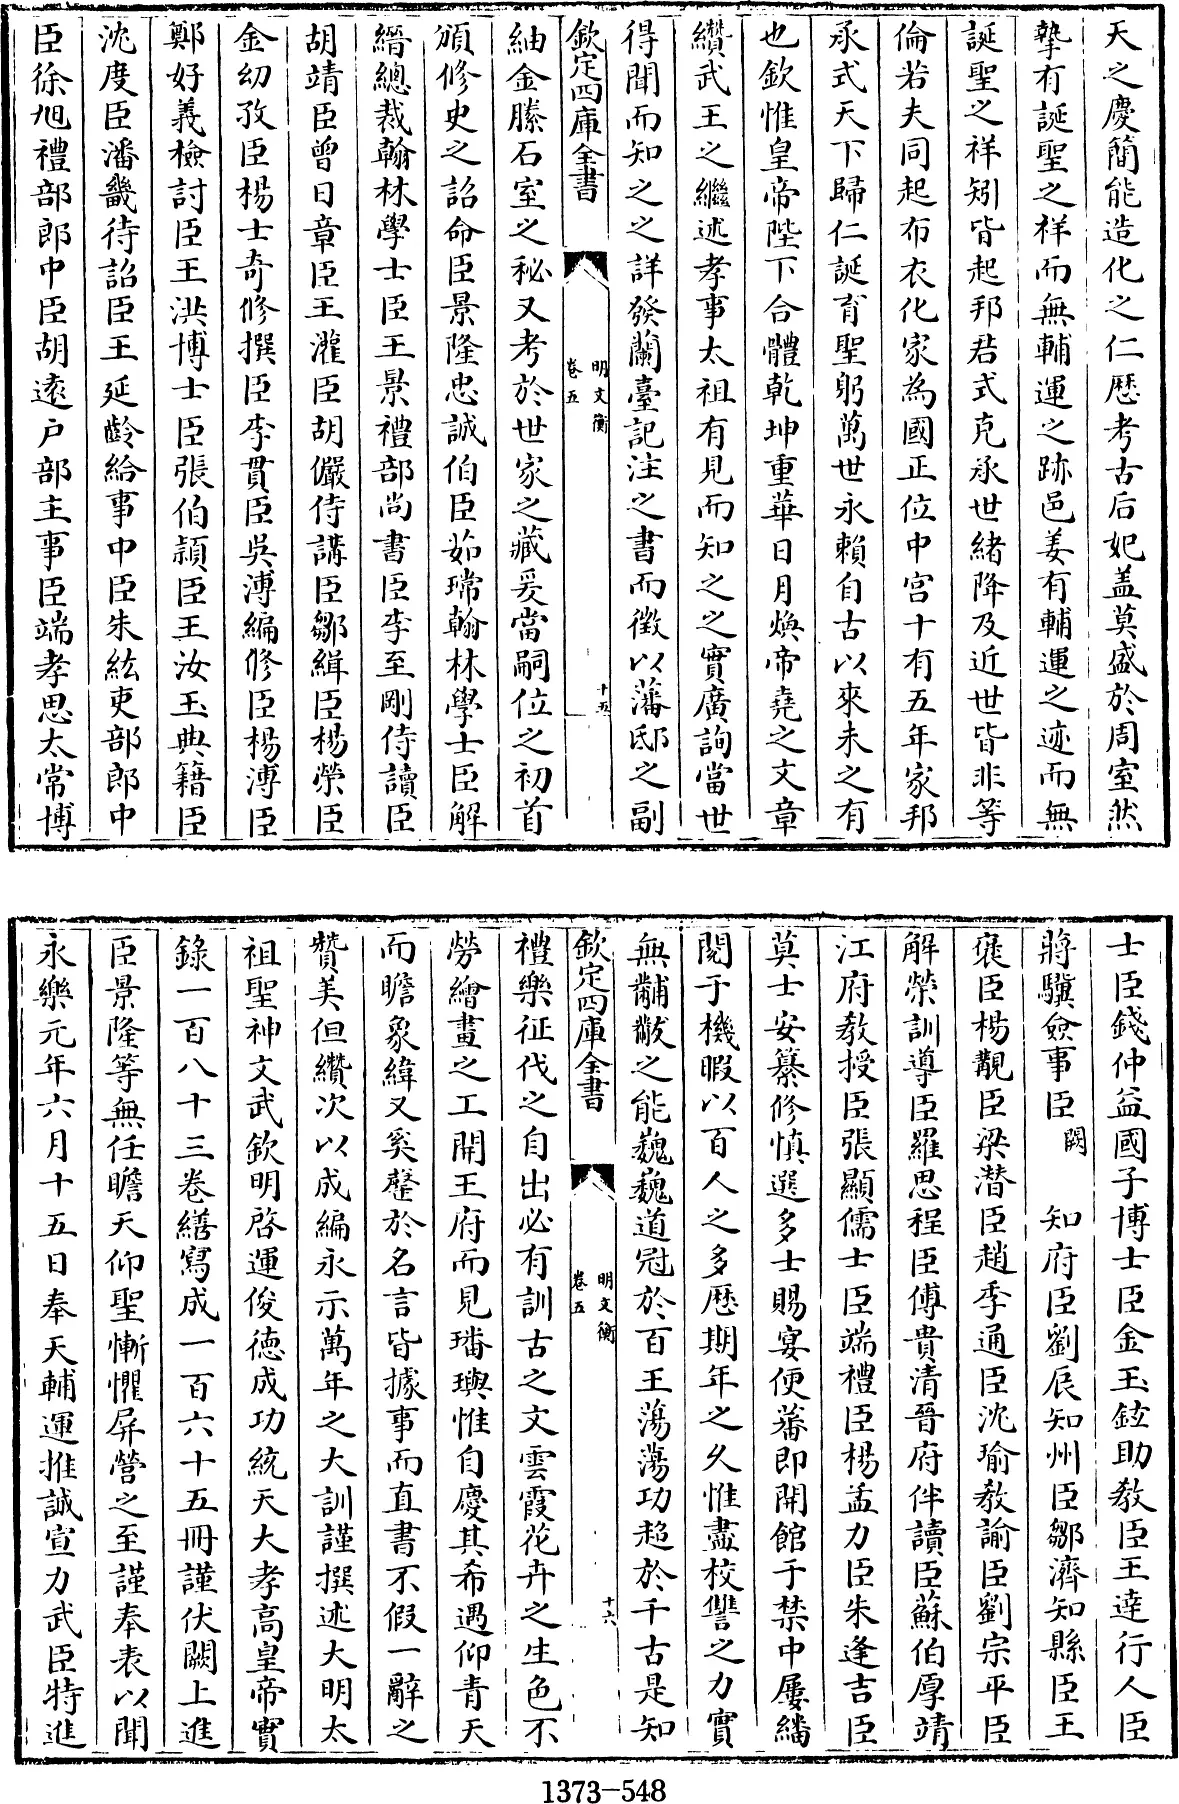 天之慶簡能造化之仁歴考古后妃盖莫盛於周室然
摯有誕聖之祥而無輔運之跡邑姜有輔運之迹而無
誕聖之祥矧皆起邦君式克承世緒降及近世皆非等
倫若夫同起布衣化家為國正位中宫十有五年家邦
承式天下歸仁誕育聖躬萬世永賴自古以來未之有
也欽惟皇帝陛下合體乾坤重華日月煥帝堯之文章
纉武王之繼述孝事太祖有見而知之之實廣詢當世
得聞而知之之詳發蘭臺記注之書而徵以藩邸之副
欽定四庫全書
明文衡
卷五
十五
紬金縢石室之秘又考於世家之藏爰當嗣位之初首
頒修史之詔命臣景隆忠誠伯臣茹瑺翰林學士臣解
縉總裁翰林學士臣王景禮部尚書臣李至剛侍讀臣
胡靖臣曾日章臣王灌臣胡儼侍講臣鄒緝臣楊榮臣
金幼孜臣楊士奇修撰臣李貫臣吳溥編修臣楊溥臣
鄭好義檢討臣王洪博士臣張伯潁臣王汝玉典籍臣
沈度臣潘畿待詔臣王延齡給事中臣朱紘吏部郎中
臣徐旭禮部郎中臣胡逺户部主事臣端孝思太常博
士臣錢仲益國子博士臣金玉鉉助教臣王達行人臣
蔣驥僉事臣闕知府臣劉辰知州臣鄒濟知縣臣王
褒臣楊覯臣梁潛臣趙季通臣沈瑜教諭臣劉宗平臣
解榮訓導臣羅思程臣傅貴清晉府伴讀臣蘇伯厚靖
江府教授臣張顯儒士臣端禮臣楊孟力臣朱逢吉臣
莫士安纂修慎選多士賜宴便蕃即開館于禁中屢繙
閱于機暇以百人之多歴期年之久惟盡校讐之力實
無黼黻之能巍巍道冠於百王蕩蕩功超於千古是知
欽定四庫全書
明文衡
卷五
十六
禮樂征伐之自出必有訓古之文雲霞花卉之生色不
勞繪畫之工開王府而見璠璵惟自慶其希遇仰青天
而瞻象緯又奚罄於名言皆據事而直書不假一辭之
贊美但纘次以成編永示萬年之大訓謹撰述大明太
祖聖神文武欽明啓運俊德成功統天大孝高皇帝實
錄一百八十三卷繕寫成一百六十五冊謹伏闕上進
臣景隆等無任瞻天仰聖慚懼屏營之至謹奉表以聞
永樂元年六月十五日奉天輔運推誠宣力武臣特進
1373-548